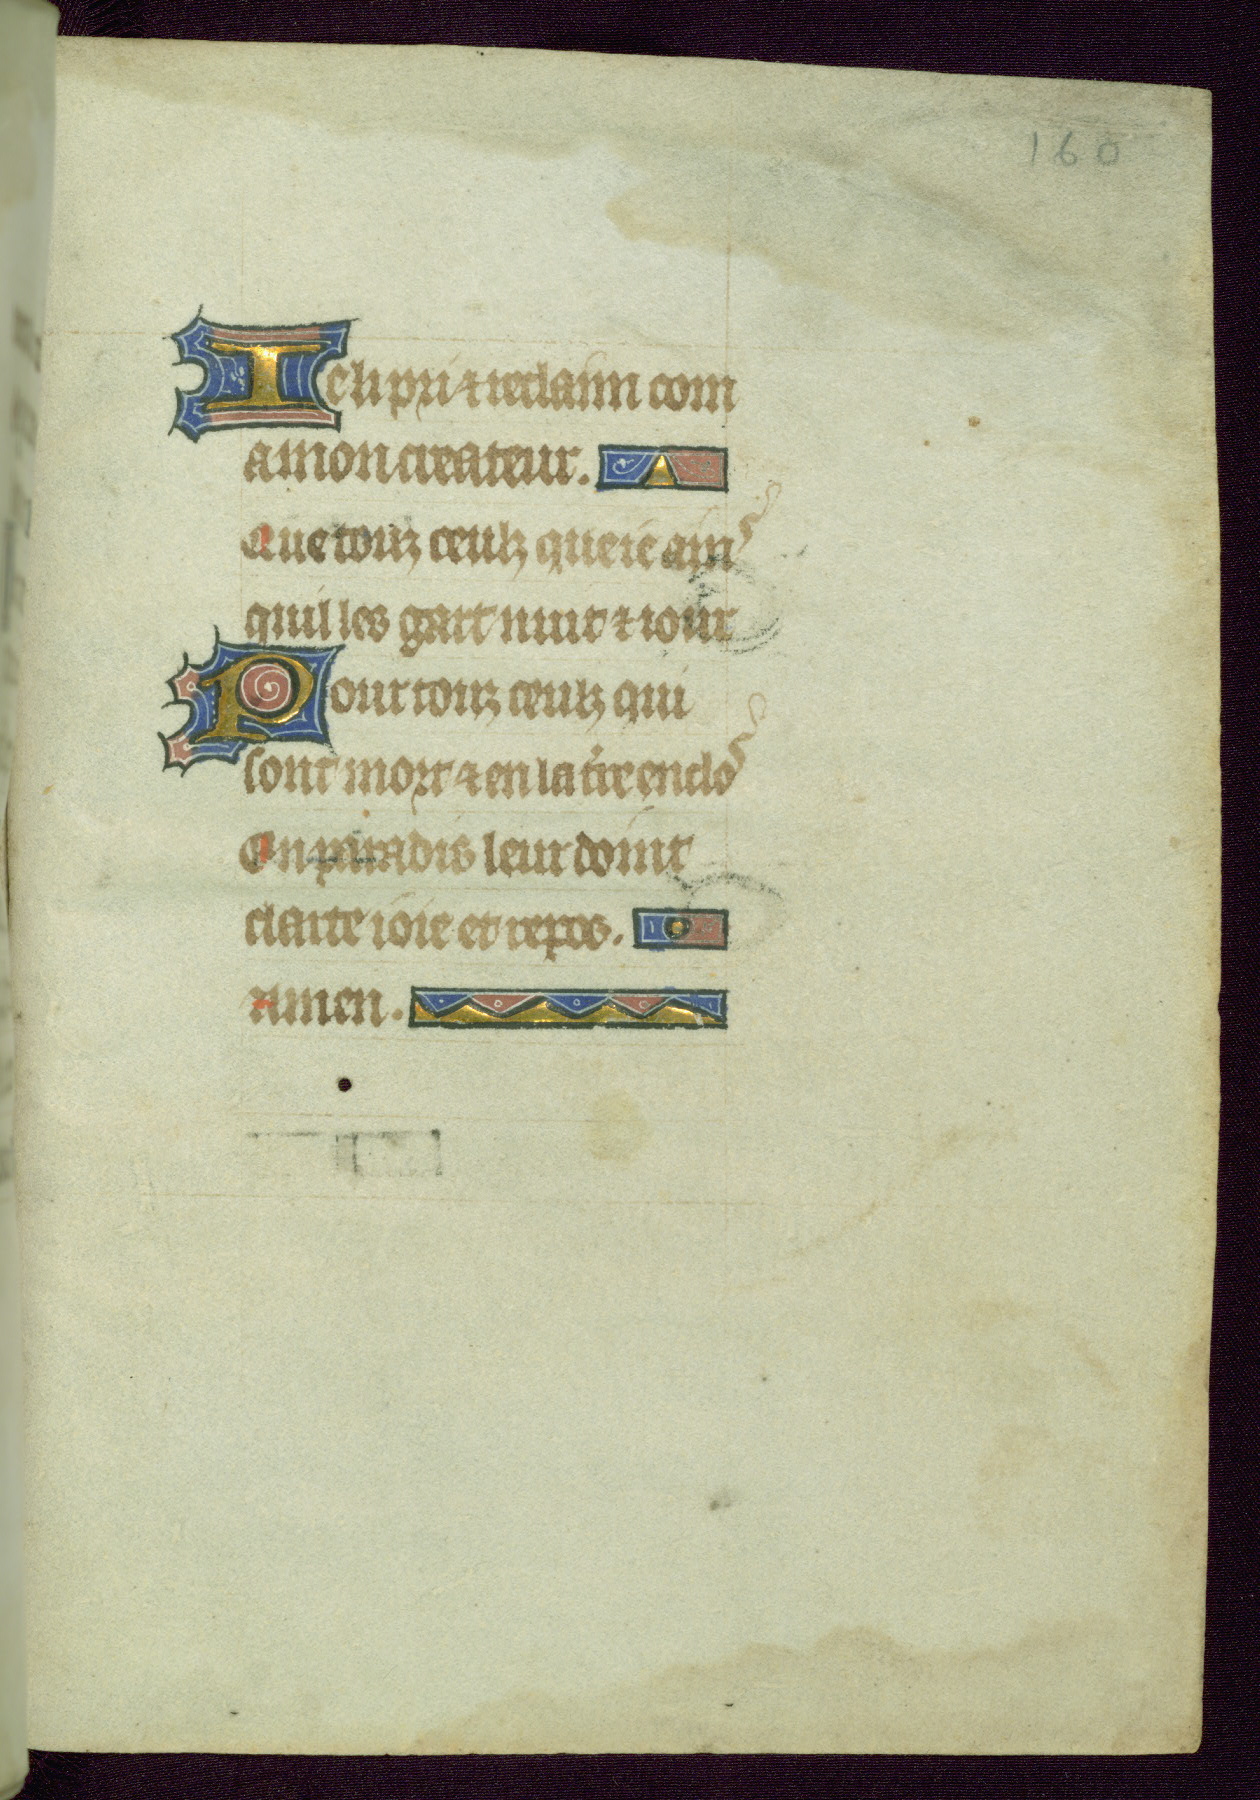 160
Ie li pri ⁊ reclaim com
a mon createur.
Que touz ceulz que ie aim
quil les gart nuit ⁊ iour
Pour touz ceulz qui
sont mort ⁊ en la tre enclo
En paradis leur doint
clarte ioie et repos.
Amen.